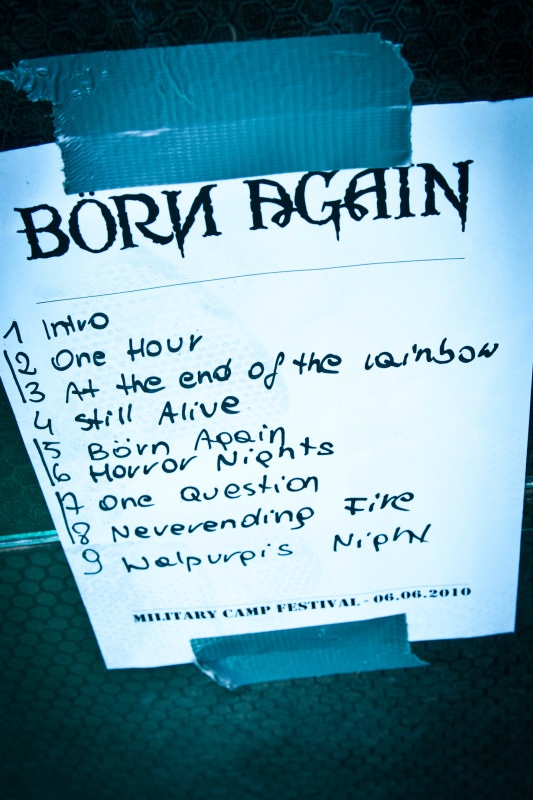 BÖRN AGAIN
1 Intro
2 One Hour
3 At the end of the rainbow
4 Still Alive
5 Börn Again
6 Horror Nights
7 One Question
8 Neverending Fire
9 Walpurgis Night
MILITARY CAMP FESTIVAL - 06.06.2010